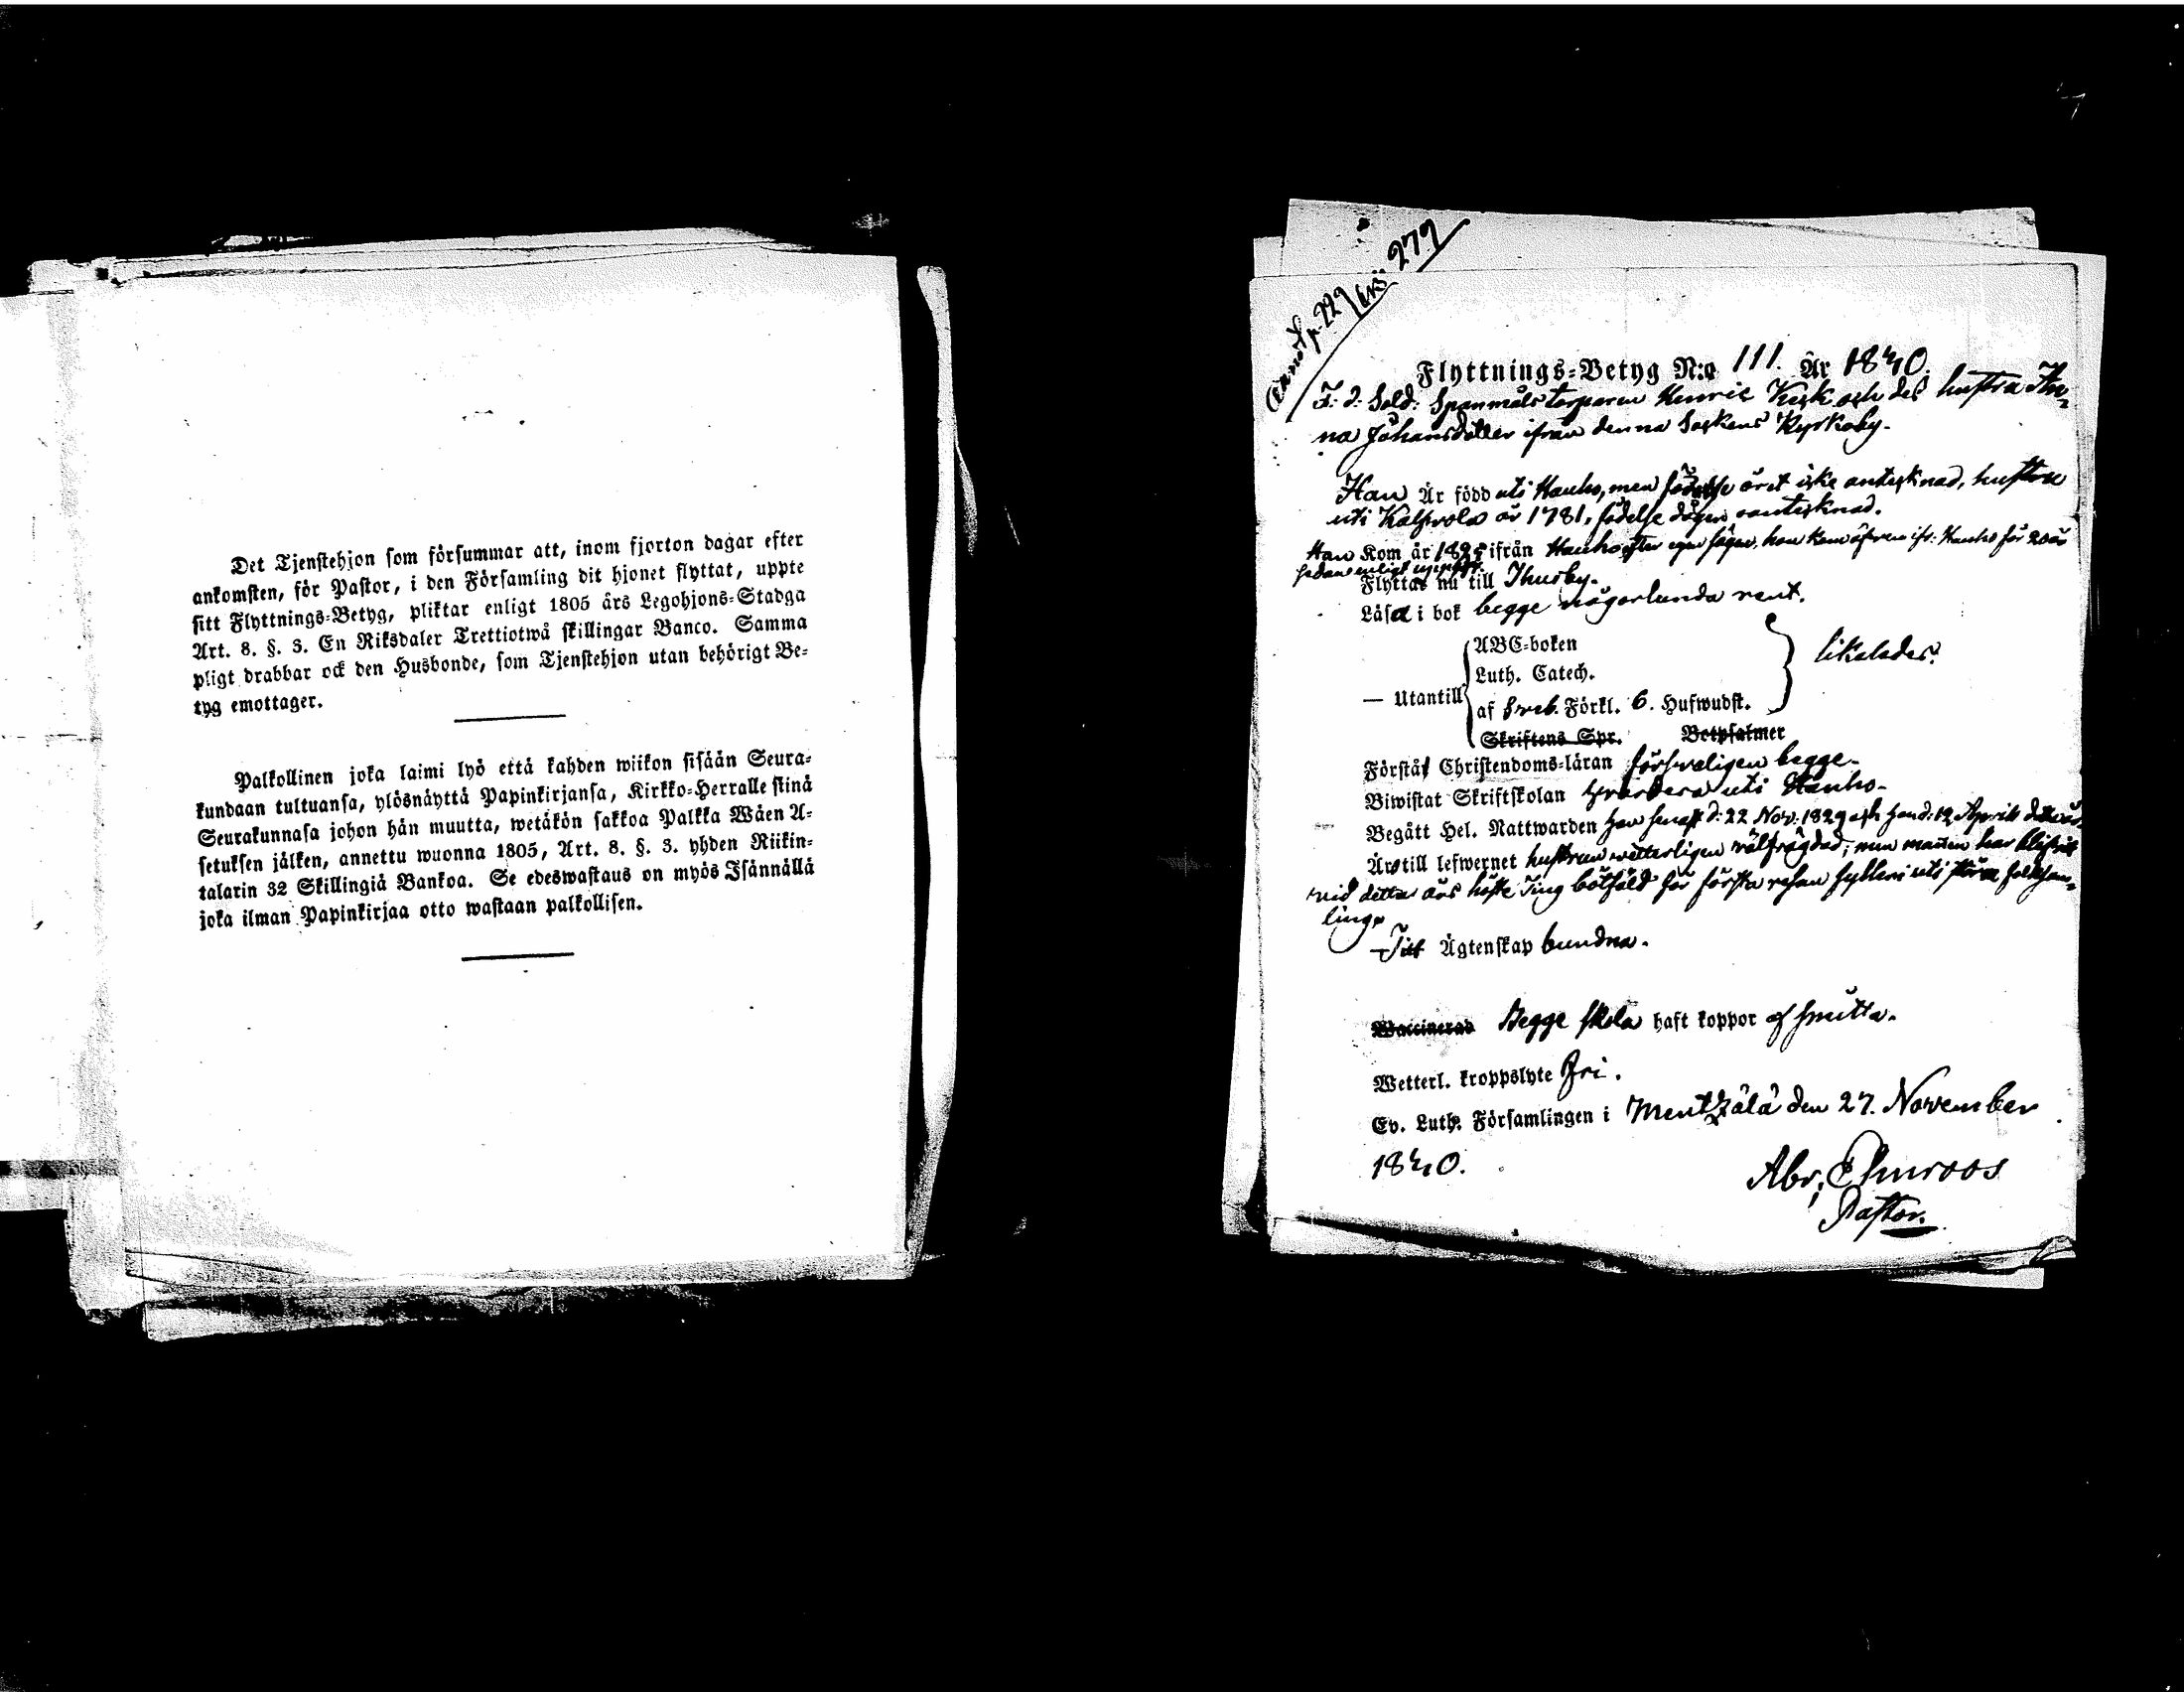 Det Tjenstehjon som försummar att, inom fjorton dagar efter
ankomsten, för Pastor, i den Församling dit hjonet flyttat, uppte
sitt Flyttnings-Betyg, pliktar enligt 1805 års Legohjons-Stadga
Art. 8. §. 3. En Riksdaler Trettiotwå skillingar Banco. Samma
pligt drabbar ock den Husbonde, som Tjenstehjon utan behörigt Be-
tyg emottager.
Palkollinen joka laimi lyö että kahden wiikon sisään Seura-
kundaan tultuansa, ylösnäyttä Papinkirjansa, Kirkko-Herralle siinä
Seurakunnasa johon hän muutta, wetäkön sakkoa Palkka Wäen A-
setuksen jälken, annettu wuonna 1805, Art. 8. §. 3. yhden Riikin-
talarin 32 Skillingiä Bankoa. Se edeswastaus on myös Isännällä
joka ilman Papinkirjaa otto wastaan palkollisen.
p. 229 279
Flyttnings-Betyg N:o 111. År 1840.
F: d: Sold: Spanmåls torparen Henric Kesk och des hustra An-
na Johansdotter ifrån denna Sockens Kyrkoby.
Han Är född uti Hauho, men födelse året icke antecknad, hustru
uti Kalfvola år 1781, födelse dagen oantecknad.
Han Kom år 1825 ifrån Hauho efter egen sägen, hon kom äfven ifr: Hauho för 20 år
sedan enligt uppgift.
Flyttas nu till Thusby.
Läsa i bok begge någorlunda rent.
— Utantill
ABC-boken
Luth. Catech.
af Sveb. Förkl. 6. Hufwudst.
Skriftens Spr. Botpsalmer
likaledes.
Förstå Christendoms-läran försvarligen begge.
Biwistat Skriftskolan hvardera uti Hauho.
Begått Hel. Nattwarden hon senast d: 22 Nov: 1829 och han d: 12 Aprill detta år.
Är till lefwernet hustrun vetterligen välfrägdad; men mannen har blifvit
vid detta års höste Ting botfäld för första resan fylleri uti större folksam-
ling.
Till Ägtenskap bundna.
Waccinerad Begge skola haft koppor af smitta.
Wetterl. kroppslyte fri.
Ev. Luth. Församlingen i Mentzälä den 27. November
1840.
Abr: Elmroos
Pastor.